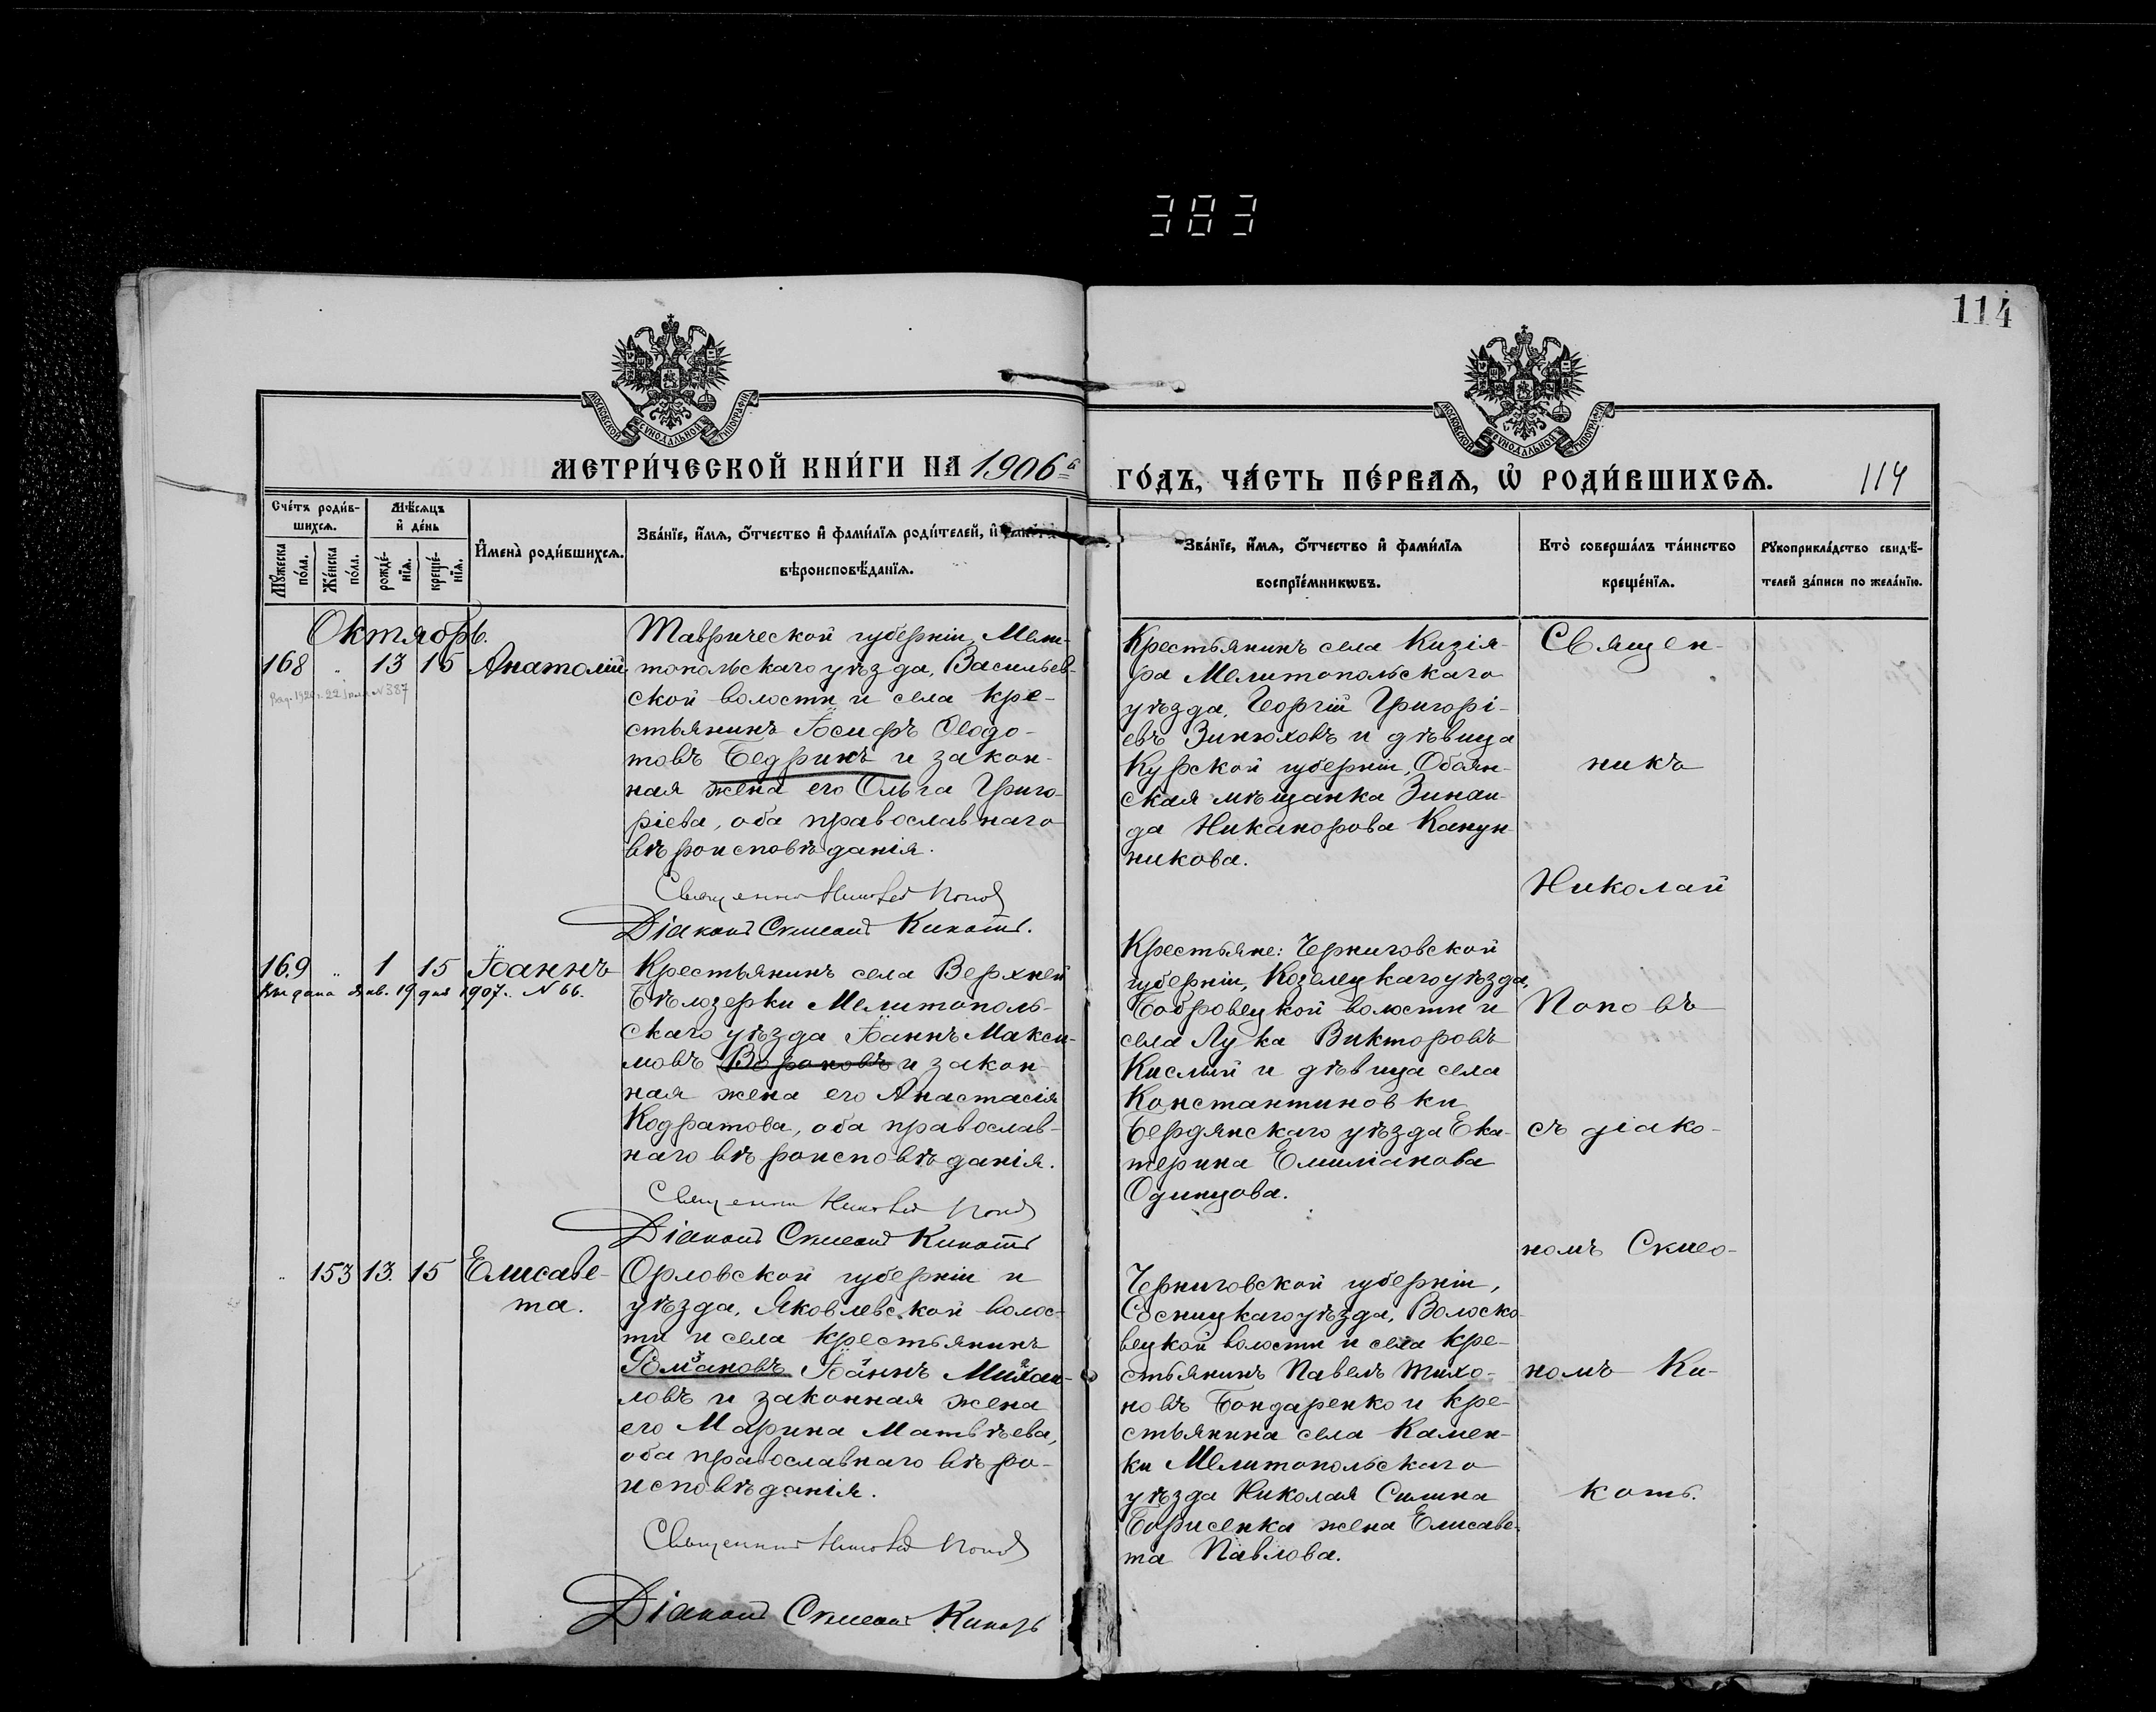 383
114
МОСКОВСКОЙ СѴНОДАЛЬНОЙ ТИПОГРАФІИ
МОСКОВСКОЙ СѴНОДАЛЬНОЙ ТИПОГРАФІИ
МЕТРИ́ЧЕСКОЙ КНИ́ГИ НА 1906й
ГО́ДЪ, ЧА́СТЬ ПЕ́РВАѦ, Ѡ҆ РОДИ́ВШИХСѦ. 114
Сче́тъ роди́в-
шихсѧ.
Мѣ́сѧцъ
и҆ де́нь
Мꙋ́жеска по́ла.
Же́нска по́ла.
рожде́-
нїѧ.
креще́-
нїѧ.
И҆мена̀ роди́вшихсѧ.
Зва́нїе, и҆́мѧ, ѻ҆́тчество и҆ фами́лїѧ роди́телей, и҆
вѣроисповѣ́данїѧ.
Зва́нїе, и҆́мѧ, ѻ҆́тчество и҆ фами́лїѧ
воспрїе́мникѡвъ.
Кто̀ соверша́лъ та́инство
креще́нїѧ.
Рꙋкоприкла́дство свидѣ́-
телей за́писи по жела́нїю.
Октябрь.
168 " 13 15 Анатолій
№ 387
Таврической губерніи, Мели-
топольскаго уѣзда, Васильев-
ской волости и села кре-
стьянинъ Іосифъ Ѳеодо-
товъ Бедринъ и закон-
ная жена его Ольга Григо-
ріева, оба православнаго
вѣроисповѣданія.
Священникъ Николай Попов
Діаконъ Скиеонъ Кикоть.
Крестьянинъ села Кизія-
ра Мелитопольскаго
уѣзда, Георгій Григорі-
евъ Зинюховъ и дѣвица
Курской губерніи, Обоян-
ская мѣщанка Зинаи-
да Никанорова Канун-
никова.
169 " 1 15 Іоаннъ
Выдана Янв. 19 дня 1907 г. № 66.
Крестьянинъ села Верхней
Бѣлозерки Мелитополь-
скаго уѣзда Іоаннъ Макси-
мовъ Вороновъ и закон-
ная жена его Анастасія
Кодратова, оба православ-
наго вѣроисповѣданія.
Священникъ Николай Попов
Діаконъ Скиеонъ Кикоть
Крестьяне: Черниговской
губерніи, Козелецкаго уѣзда,
Бобровецкой волости и
села Лука Викторовъ
Кислый и дѣвица села
Константиновки
Бердянскаго уѣзда Ека-
терина Емиліанова
Одинцова.
" 153 13. 15 Елисаве-
та.
Орловской губерніи и
уѣзда, Яковлевской волос-
ти и села крестьянинъ
Романовъ Іоаннъ Михаи-
ловъ и законная жена
его Марина Матвѣева,
оба православнаго вѣро-
исповѣданія.
Священникъ Николай Попов
Діаконъ Скиеонъ Кикоть
Черниговской губерніи,
Сосницкаго уѣзда, Волоско-
вецкой волости и села кре-
стьянинъ Павелъ Тихо-
новъ Бондаренко и кре-
стьянина села Камен-
ки Мелитопольскаго
уѣзда Николая Силина
Борисенка жена Елисаве-
та Павлова.
Священ-
никъ
Николай
Поповъ
съ діако-
номъ Скиео-
номъ Ки-
коть.